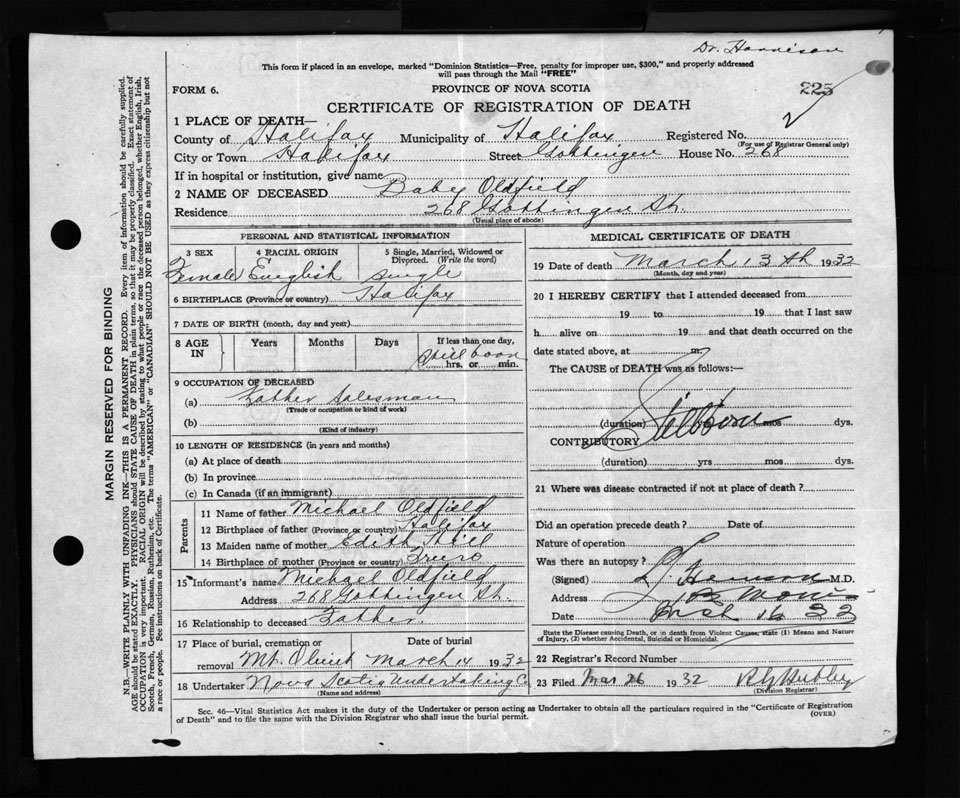 Dr. Harrison
This form if placed in an envelope, marked "Dominion Statistics—Free, penalty for improper use, $300," and properly addressed
will pass through the Mail "FREE"
FORM 6.
PROVINCE OF NOVA SCOTIA
225
CERTIFICATE OF REGISTRATION OF DEATH
1 PLACE OF DEATH—
County of Halifax Municipality of Halifax Registered No.
(For use of Registrar General only)
City or Town Halifax Street Gottingen House No. 268
If in hospital or institution, give name
2 NAME OF DECEASED Baby Oldfield
Residence 268 Gottingen St.
(Usual place of abode)
PERSONAL AND STATISTICAL INFORMATION
3 SEX 4 RACIAL ORIGIN 5 Single, Married, Widowed or Divorced. (Write the word)
Female English single
6 BIRTHPLACE (Province or country) Halifax
7 DATE OF BIRTH (month, day and year)
8 AGE IN Years Months Days If less than one day,
Still born
hrs. or min.
9 OCCUPATION OF DECEASED
(a) Father Salesman
(Trade or occupation or kind of work)
(b)
(Kind of industry)
10 LENGTH OF RESIDENCE (in years and months)
(a) At place of death
(b) In province
(c) In Canada (if an immigrant)
Parents
11 Name of father Michael Oldfield
12 Birthplace of father (Province or country) Halifax
13 Maiden name of mother Edith
14 Birthplace of mother (Province or country) Truro
15 Informant's name Michael Oldfield
Address 268 Gottingen St.
16 Relationship to deceased Father.
17 Place of burial, cremation or Date of burial
removal Mt. Olivet March 14 1932
18 Undertaker Nova Scotia Undertaking Co
(Name and address)
MEDICAL CERTIFICATE OF DEATH
19 Date of death March 13th 1932
(Month, day and year)
20 I HEREBY CERTIFY that I attended deceased from
19 to 19 that I last saw
h alive on 19 and that death occurred on the
date stated above, at m.
The CAUSE of DEATH was as follows:—
Stillborn
(duration) yrs mos dys.
CONTRIBUTORY
(duration) yrs mos dys.
21 Where was disease contracted if not at place of death?
Did an operation precede death? Date of
Nature of operation
Was there an autopsy?
(Signed) M.D.
Address
Date 16 32
State the Disease causing Death, or in death from Violent Causes, state (1) Means and Nature
of Injury, (2) whether Accidental, Suicidal or Homicidal.
22 Registrar's Record Number
23 Filed Mar 26 1932
(Division Registrar)
Sec. 46—Vital Statistics Act makes it the duty of the Undertaker or person acting as Undertaker to obtain all the particulars required in the "Certificate of Registration
of Death" and to file the same with the Division Registrar who shall issue the burial permit.
(OVER)
MARGIN RESERVED FOR BINDING
N.B.—WRITE PLAINLY WITH UNFADING INK—THIS IS A PERMANENT RECORD. Every item of information should be carefully supplied.
AGE should be stated EXACTLY. PHYSICIANS should STATE CAUSE OF DEATH in plain terms, so that it may be properly classified. Exact statement of
OCCUPATION is very important. RACIAL ORIGIN will be described by stating to what people or race the deceased person belonged, whether English, Irish,
Scotch, French, German, Russian, Ruthenian, etc. The terms "AMERICAN" or "CANADIAN" SHOULD NOT BE USED as they express citizenship but not
a race or people. See instructions on back of Certificate.